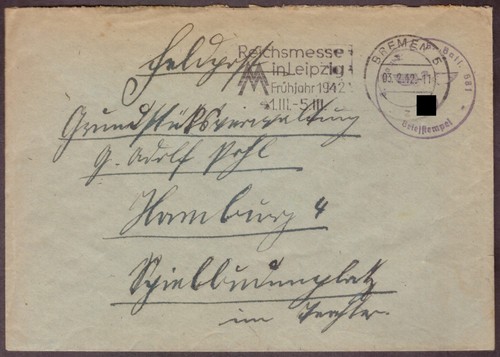 Feldpost
Reichsmesse
in Leipzig
Frühjahr 1942
1.III.-5.III.
BREMEN 5
Batl. 561
Briefstempel
Grundstüksverwaltung
G. Adolf Pohl
Hamburg 4
Spielbudenplatz
im